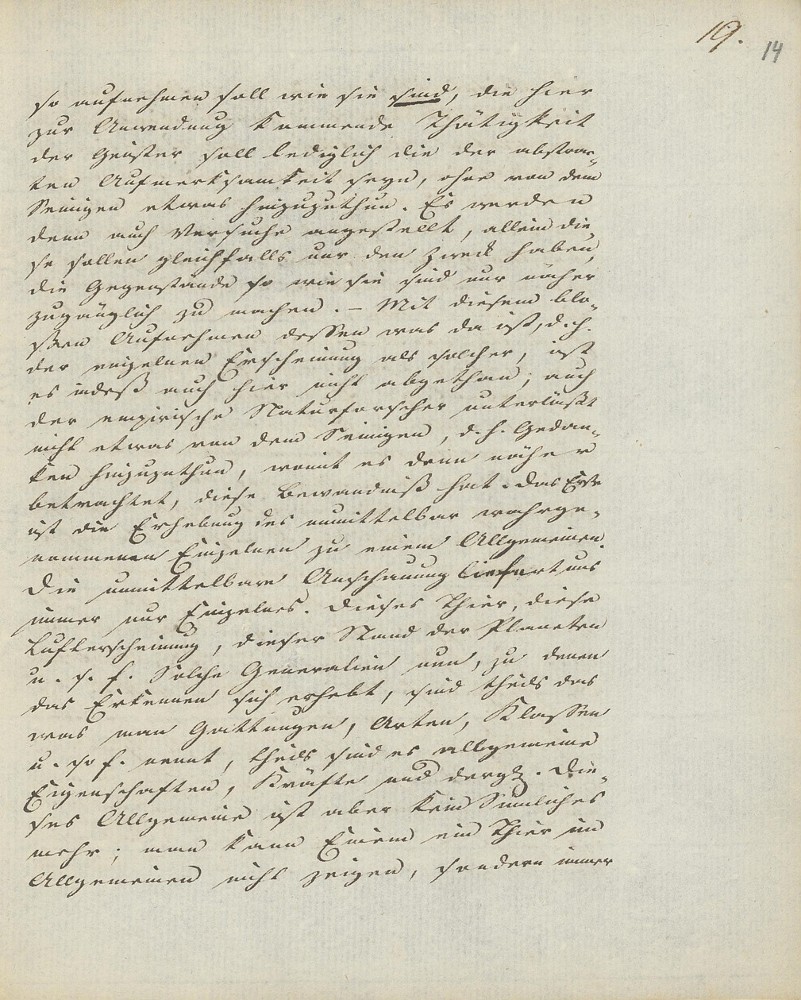 19.
14
so aufnehmen soll wie sie sind, die hier
zur Anwendung kommende Thätigkeit
der Geister soll lediglich die der abstrac-
ten Aufmerksamkeit seyn, ohne von dem
Seinigen etwas hinzuzuthun. Es werden
denn auch Versuche angestellt, allein die-
se sollen gleichfalls nur den Zweck haben,
die Gegenstände so wie sie sind nur näher
zugänglich zu machen. – Mit diesem blo-
ßen Aufnehmen dessen was da ist, d. h.
der einzelnen Erscheinung als solcher, ist
es indeß auch hier nicht abgethan; auch
der empirische Naturforscher unterläßt
nicht etwas von dem Seinigen, d. h. Gedan-
ken hinzuzuthun, womit es denn näher
betrachtet, diese Bewandniß hat. Das Erste
ist die Erhebung des unmittelbar wahrge-
nommenen Einzelnen zu einem Allgemeinen.
Die unmittelbare Anschauung liefert uns
immer nur Einzelnes. Dieses Thier, diese
Lufterscheinung, dieser Stand der Planeten
u. s. f. Solche Generalien nun, zu denen
das Erkennen sich erhebt, sind theils das
was man Gattungen, Arten, Klassen
u. so f. nennt, theils sind es allgemeine
Eigenschaften, Kräfte und dergl. Die-
ses Allgemeine ist aber kein Sinnliches
mehr; man kann Einem ein Thier im
Allgemeinen nicht zeigen, sondern immer